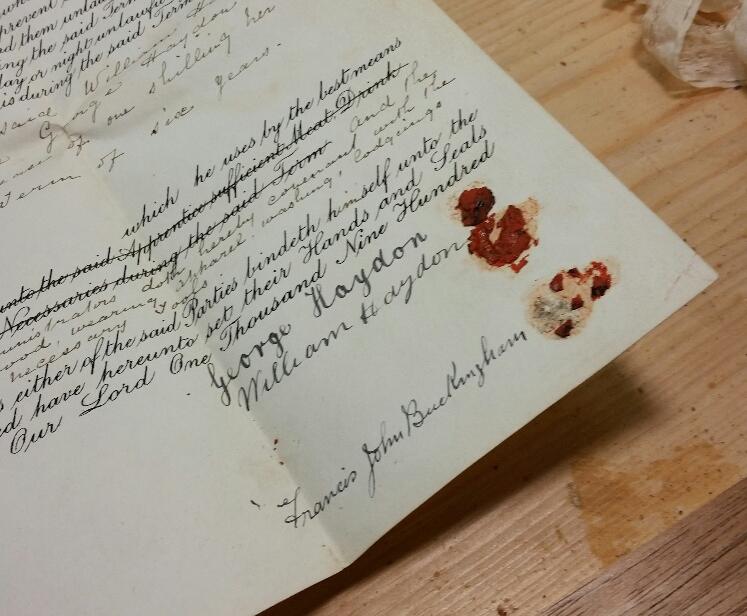 them unla
ing the said Term
day or night unlawfu
is during the said Term
said William Haydon
George Haydon
of one shilling her
Term of six years.
which he uses by the best means
unto the said Apprentice sufficient Meat Drink
Necessaries during the said Term and the
doth hereby covenant with the
wearing apparel, washing, lodgeings
necessary Tools
either of the said Parties bindeth himself unto the
have hereunto set their Hands and Seals
Our Lord One Thousand Nine Hundred
George Haydon
William Haydon
Francis John Buckingham